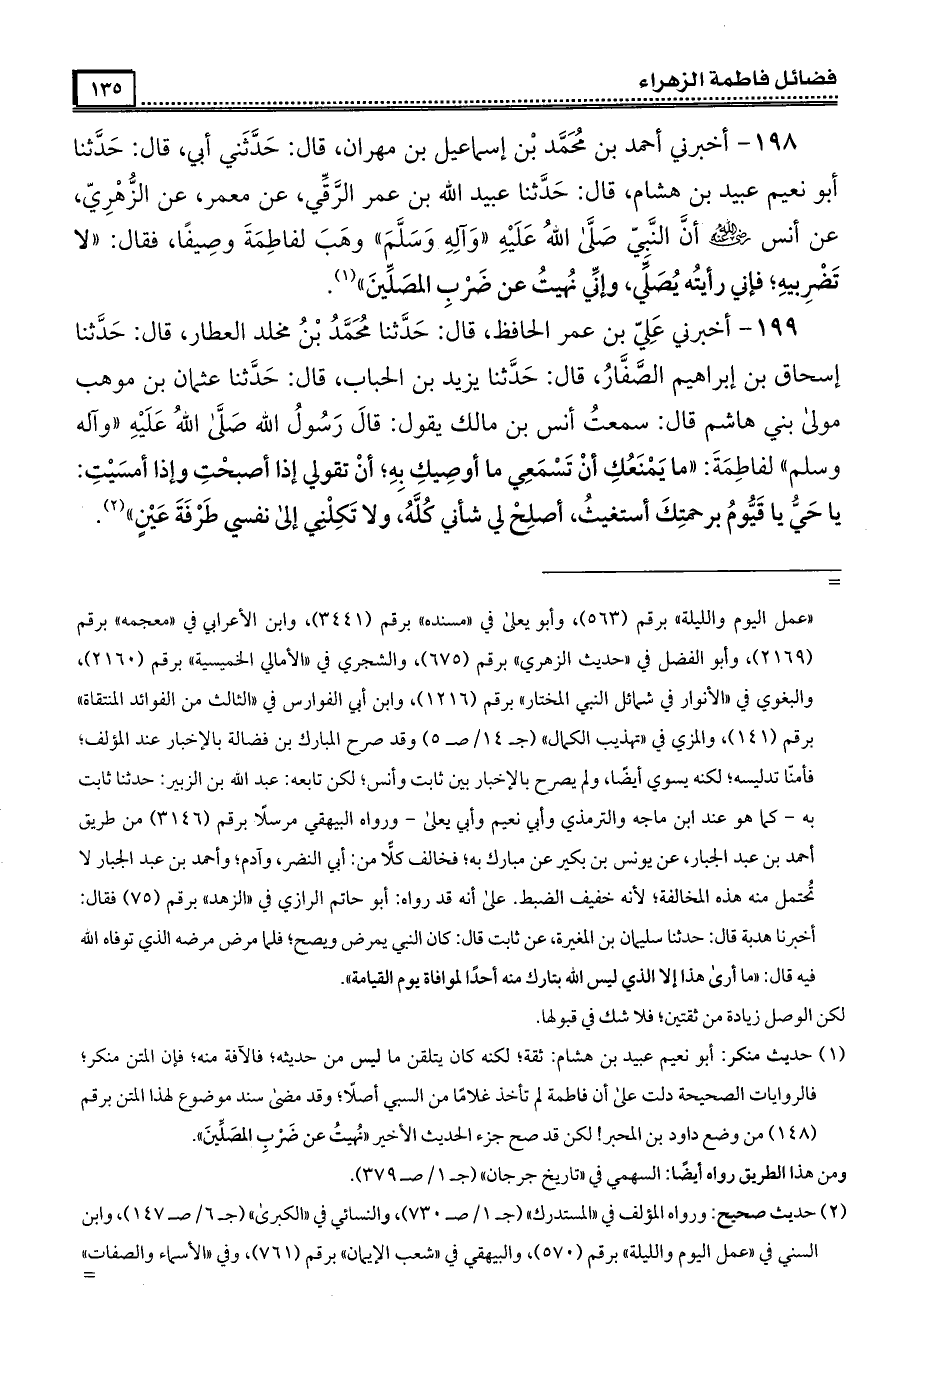 فضائل فاطمة الزهراء
١٣٥
١٩٨- أخبرني أحمد بن مُحَمَّد بْن إسماعيل بن مهران، قال: حَدَّثَني أبي، قال: حَدَّثنا
أبو نعيم عبيد بن هشام، قال: حَدَّثنا عبيد الله بن عمر الرَّقِّي، عن معمر، عن الزُّهْرِيّ،
عن أنس رضي الله عنه أنَّ النَّبِيّ صَلَّى اللهُ عَلَيْهِ «وَآلِهِ وَسَلَّمَ» وهَبَ لفاطِمَةَ وصِيفًا، فقال: «لا
تَضْرِبيهِ؛ فإني رأيتُه يُصَلِّي، وإنِّي نُهيتُ عن ضَرْبِ المصَلِّينَ»(١).
١٩٩- أخبرني عَلِيّ بن عمر الحافظ، قال: حَدَّثنا مُحَمَّدُ بْنُ مخلد العطار، قال: حَدَّثنا
إسحاق بن إبراهيم الصَّفَّارُ، قال: حَدَّثنا يزيد بن الحباب، قال: حَدَّثنا عثمان بن موهب
مولىٰ بني هاشم قال: سمعتُ أنس بن مالك يقول: قالَ رَسُولُ الله صَلَّىٰ اللهُ عَلَيْهِ «وآله
وسلم» لفاطِمَةَ: «ما يَمْنَعُكِ أنْ تَسْمَعِي ما أوصِيكِ بِهِ؛ أنْ تقولي إذا أصبحْتِ وإذا أمسَيْتِ:
يا حَيُّ يا قَيُّومُ برحمتِكَ أستغيثُ، أصلِحْ لي شأني كُلَّهُ، ولا تَكِلْنِي إلىٰ نفسي طَرْفَةَ عَيْنٍ»(٢).
=
«عمل اليوم والليلة» برقم (٥٦٣)، وأبو يعلىٰ في «مسنده» برقم (٣٤٤١)، وابن الأعرابي في «معجمه» برقم
(٢١٦٩)، وأبو الفضل في «حديث الزهري» برقم (٦٧٥)، والشجري في «الأمالي الخميسية» برقم (٢١٦٠)،
والبغوي في «الأنوار في شمائل النبي المختار» برقم (١٢١٦)، وابن أبي الفوارس في «الثالث من الفوائد المنتقاة»
برقم (١٤١)، والمزي في «تهذيب الكمال» (جـ ١٤/ صـ ٥) وقد صرح المبارك بن فضالة بالإخبار عند المؤلف؛
فأمنّا تدليسه؛ لكنه يسوي أيضًا، ولم يصرح بالإخبار بين ثابت وأنس؛ لكن تابعه: عبد الله بن الزبير: حدثنا ثابت
به - كما هو عند ابن ماجه والترمذي وأبي نعيم وأبي يعلىٰ - ورواه البيهقي مرسلًا برقم (٣١٤٦) من طريق
أحمد بن عبد الجبار، عن يونس بن بكير عن مبارك به؛ فخالف كلًّا من: أبي النضر، وآدم؛ وأحمد بن عبد الجبار لا
تُحتمل منه هذه المخالفة؛ لأنه خفيف الضبط. علىٰ أنه قد رواه: أبو حاتم الرازي في «الزهد» برقم (٧٥) فقال:
أخبرنا هدبة قال: حدثنا سليمان بن المغيرة، عن ثابت قال: كان النبي يمرض ويصح؛ فلما مرض مرضه الذي توفاه الله
فيه قال: «ما أرىٰ هذا إلا الذي ليس الله بتارك منه أحدًا لموافاة يوم القيامة».
لكن الوصل زيادة من ثقتين؛ فلا شك في قبولها.
(١) حديث منكر: أبو نعيم عبيد بن هشام: ثقة؛ لكنه كان يتلقن ما ليس من حديثه؛ فالآفة منه؛ فإن المتن منكر؛
فالروايات الصحيحة دلت علىٰ أن فاطمة لم تأخذ غلامًا من السبي أصلًا؛ وقد مضىٰ سند موضوع لهذا المتن برقم
(١٤٨) من وضع داود بن المحبر! لكن قد صح جزء الحديث الأخير «نُهيتُ عن ضَرْبِ المصَلِّينَ».
ومن هذا الطريق رواه أيضًا: السهمي في «تاريخ جرجان» (جـ ١/ صـ ٣٧٩).
(٢) حديث صحيح: ورواه المؤلف في «المستدرك» (جـ ١/ صـ ٧٣٠)، والنسائي في «الكبرىٰ» (جـ ٦/ صـ ١٤٧)، وابن
السني في «عمل اليوم والليلة» برقم (٥٧٠)، والبيهقي في «شعب الإيمان» برقم (٧٦١)، وفي «الأسماء والصفات»
=